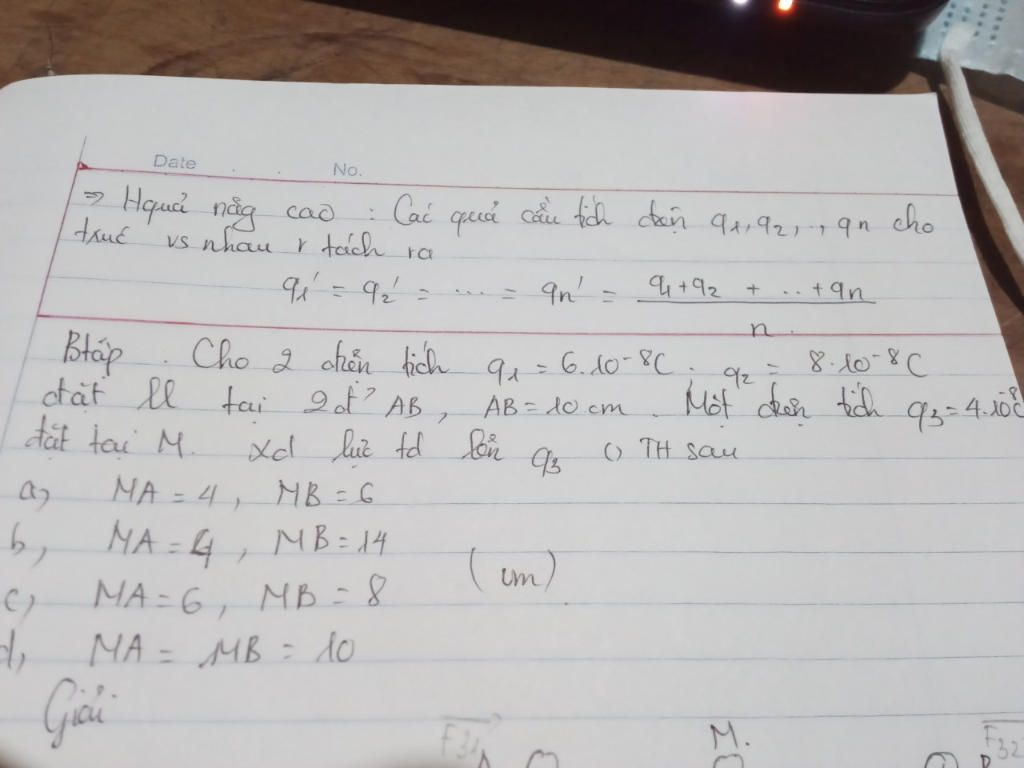 Date No.
⇒ Hquả nâg cao : Các quả cầu tích điện q1, q2, .., qn cho
txúc vs nhau r tách ra
q1' = q2' = ... = qn' = (q1+q2 + .. +qn) / n.
Btập . Cho 2 điện tích q1 = 6.10⁻⁸C . q2 = 8.10⁻⁸C
đặt tại 2đ' AB, AB = 10 cm. Một điện tích q3 = 4.10⁻⁸C
đặt tại M. xđ lực td lên q3 () TH sau
a, MA = 4, MB = 6
b, MA = 4, MB = 14
(cm)
c, MA = 6, MB = 8
d, MA = MB = 10
Giải
F31 M. F32
A